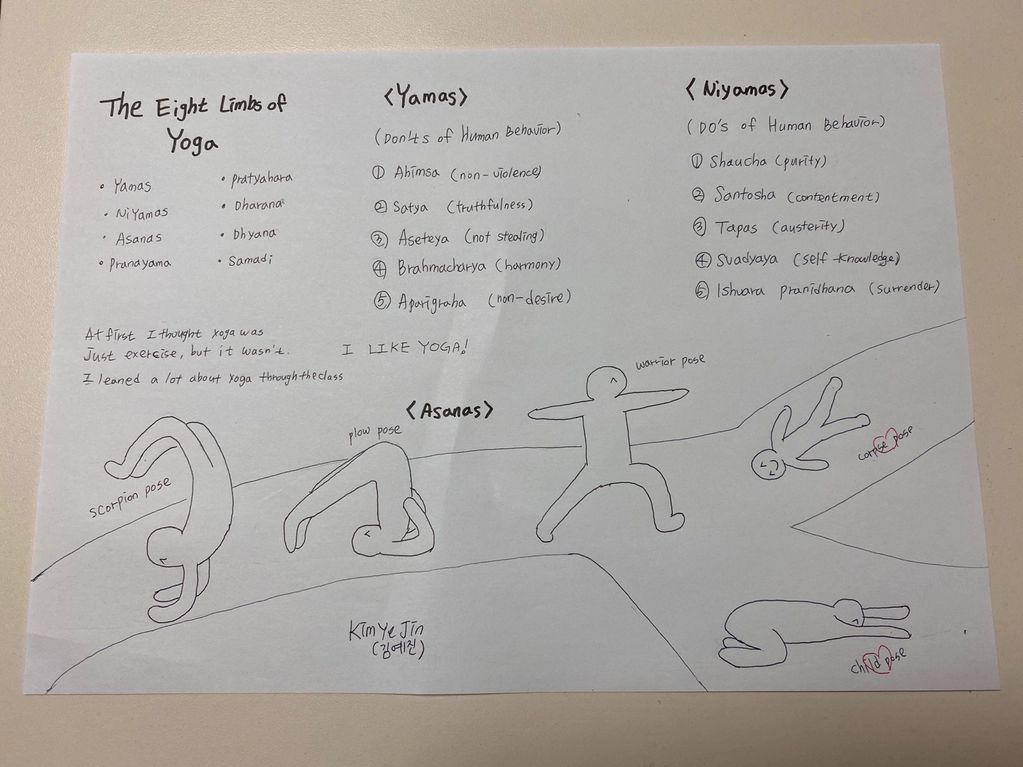 The Eight Limbs of
Yoga
• Yamas
• Niyamas
• Asanas
• Pranayama
• Pratyahara
• Dharana
• Dhyana
• Samadi
<Yamas>
(Don'ts of Human Behavior)
① Ahimsa (non-violence)
② Satya (truthfulness)
③ Aseteya (not stealing)
④ Brahmacharya (harmony)
⑤ Aparigraha (non-desire)
<Niyamas>
(DO's of Human Behavior)
① Shaucha (purity)
② Santosha (contentment)
③ Tapas (austerity)
④ Svadyaya (self-knowledge)
⑤ Ishvara pranidhana (surrender)
At first I thought yoga was
Just exercise, but it wasn't.
I leaned a lot about yoga through the class
I LIKE YOGA!
<Asanas>
scorpion pose
plow pose
warrior pose
corpse pose
child pose
Kim Ye Jin
(김예진)